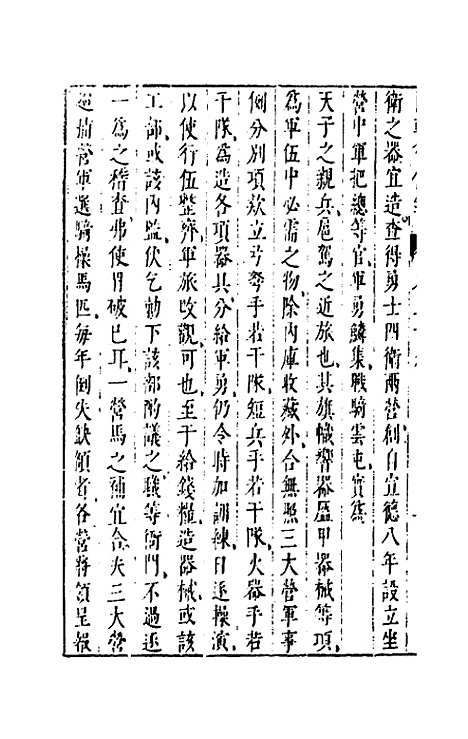 衛之器宜造查得勇士四衛兩營創自宣德八年設立坐
營中軍把總等官軍勇鱗集戰騎雲屯實爲
天子之親兵扈駕之近旅也其旗幟響器盔甲器械等項
爲軍伍中必需之物除内庫收藏外合無照三大營軍事
例分别項欵立弓弩手若干隊短兵手若干隊火器手若
干隊爲造各項器具分給軍勇仍令時加訓練日逐操演
以使行伍整齊軍旅改觀可也至于給錢糧造器械或該
工部或該内監伏乞勅下該部酌議之職等衙門不過逐
一爲之稽查弗使冒破已耳一營馬之補宜合夫三大營
巡捕營軍選騎操馬匹每年倒失缺領者各營將領呈報